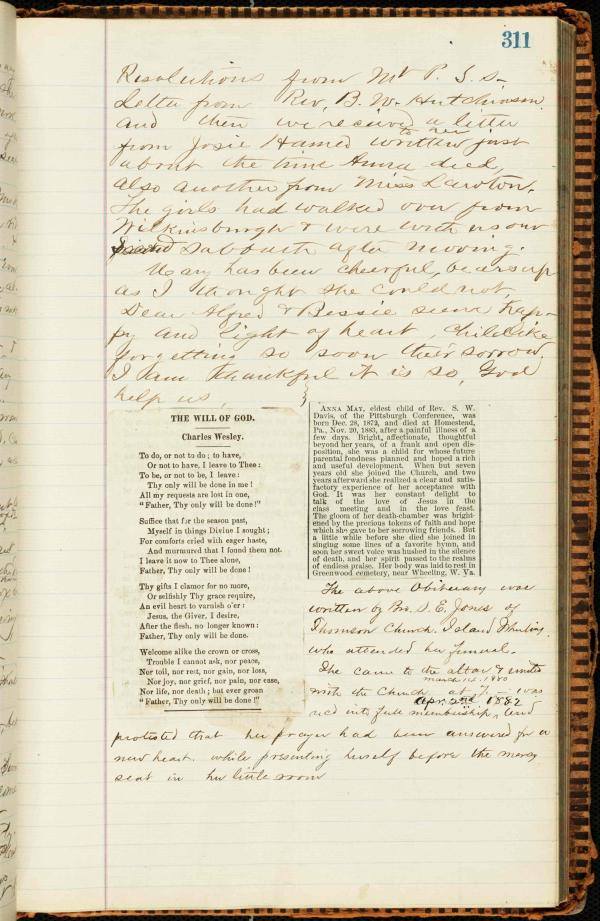 311
Resolutions from Mt P. S. S-
Letter from Rev, B. W. Hutchinson.
and then we received a letter
from Josie Hamed written to her just
about the time Anna died,
also another from Miss Lawton.
The girls had walked over from
Wilkinsburgh & were with us our
second Sabbath after moving.
Mary has been cheerful, bears up
as I thought she could not,
Dear Alfred & Bessie seem hap-
py and light of heart, childlike
forgetting so soon their sorrow.
I am thankful it is so, God
help us,
THE WILL OF GOD.
Charles Wesley.
To do, or not to do; to have,
Or not to have, I leave to Thee:
To be, or not to be, I leave:
Thy only will be done in me!
All my requests are lost in one,
"Father, Thy only will be done!"
Suffice that for the season past,
Myself in things Divine I sought;
For comforts cried with eager haste,
And murmured that I found them not.
I leave it now to Thee alone,
Father, Thy only will be done!
Thy gifts I clamor for no more,
Or selfishly Thy grace require,
An evil heart to varnish o'er:
Jesus, the Giver, I desire,
After the flesh, no longer known:
Father, Thy only will be done.
Welcome alike the crown or cross,
Trouble I cannot ask, nor peace,
Nor toil, nor rest, nor gain, nor loss,
Nor joy, nor grief, nor pain, nor ease,
Nor life, nor death; but ever groan
"Father, Thy only will be done!"
ANNA MAY, eldest child of Rev. S. W.
Davis, of the Pittsburgh Conference, was
born Dec. 28, 1872, and died at Homestead,
Pa., Nov. 20, 1883, after a painful illness of a
few days. Bright, affectionate, thoughtful
beyond her years, of a frank and open dis-
position, she was a child for whose future
parental fondness planned and hoped a rich
and useful development. When but seven
years old she joined the Church, and two
years afterward she realized a clear and satis-
factory experience of her acceptance with
God. It was her constant delight to
talk of the love of Jesus in the
class meeting and in the love feast.
The gloom of her death-chamber was bright-
ened by the precious tokens of faith and hope
which she gave to her sorrowing friends. But
a little while before she died she joined in
singing some lines of a favorite hymn, and
soon her sweet voice was hushed in the silence
of death, and her spirit passed to the realms
of endless praise. Her body was laid to rest in
Greenwood cemetery, near Wheeling, W. Va.
The above Obituary was
written by Bro. D. E. Jones of
Thomson Church, Island Wheeling.
who attended her funeral.
She came to the altar & united
with the Church March 14. 1880
at
Apr. 2nd 1882
into full membership, and
protested that her prayer had been answered for a
new heart. while presenting herself before the mercy
seat in her little room